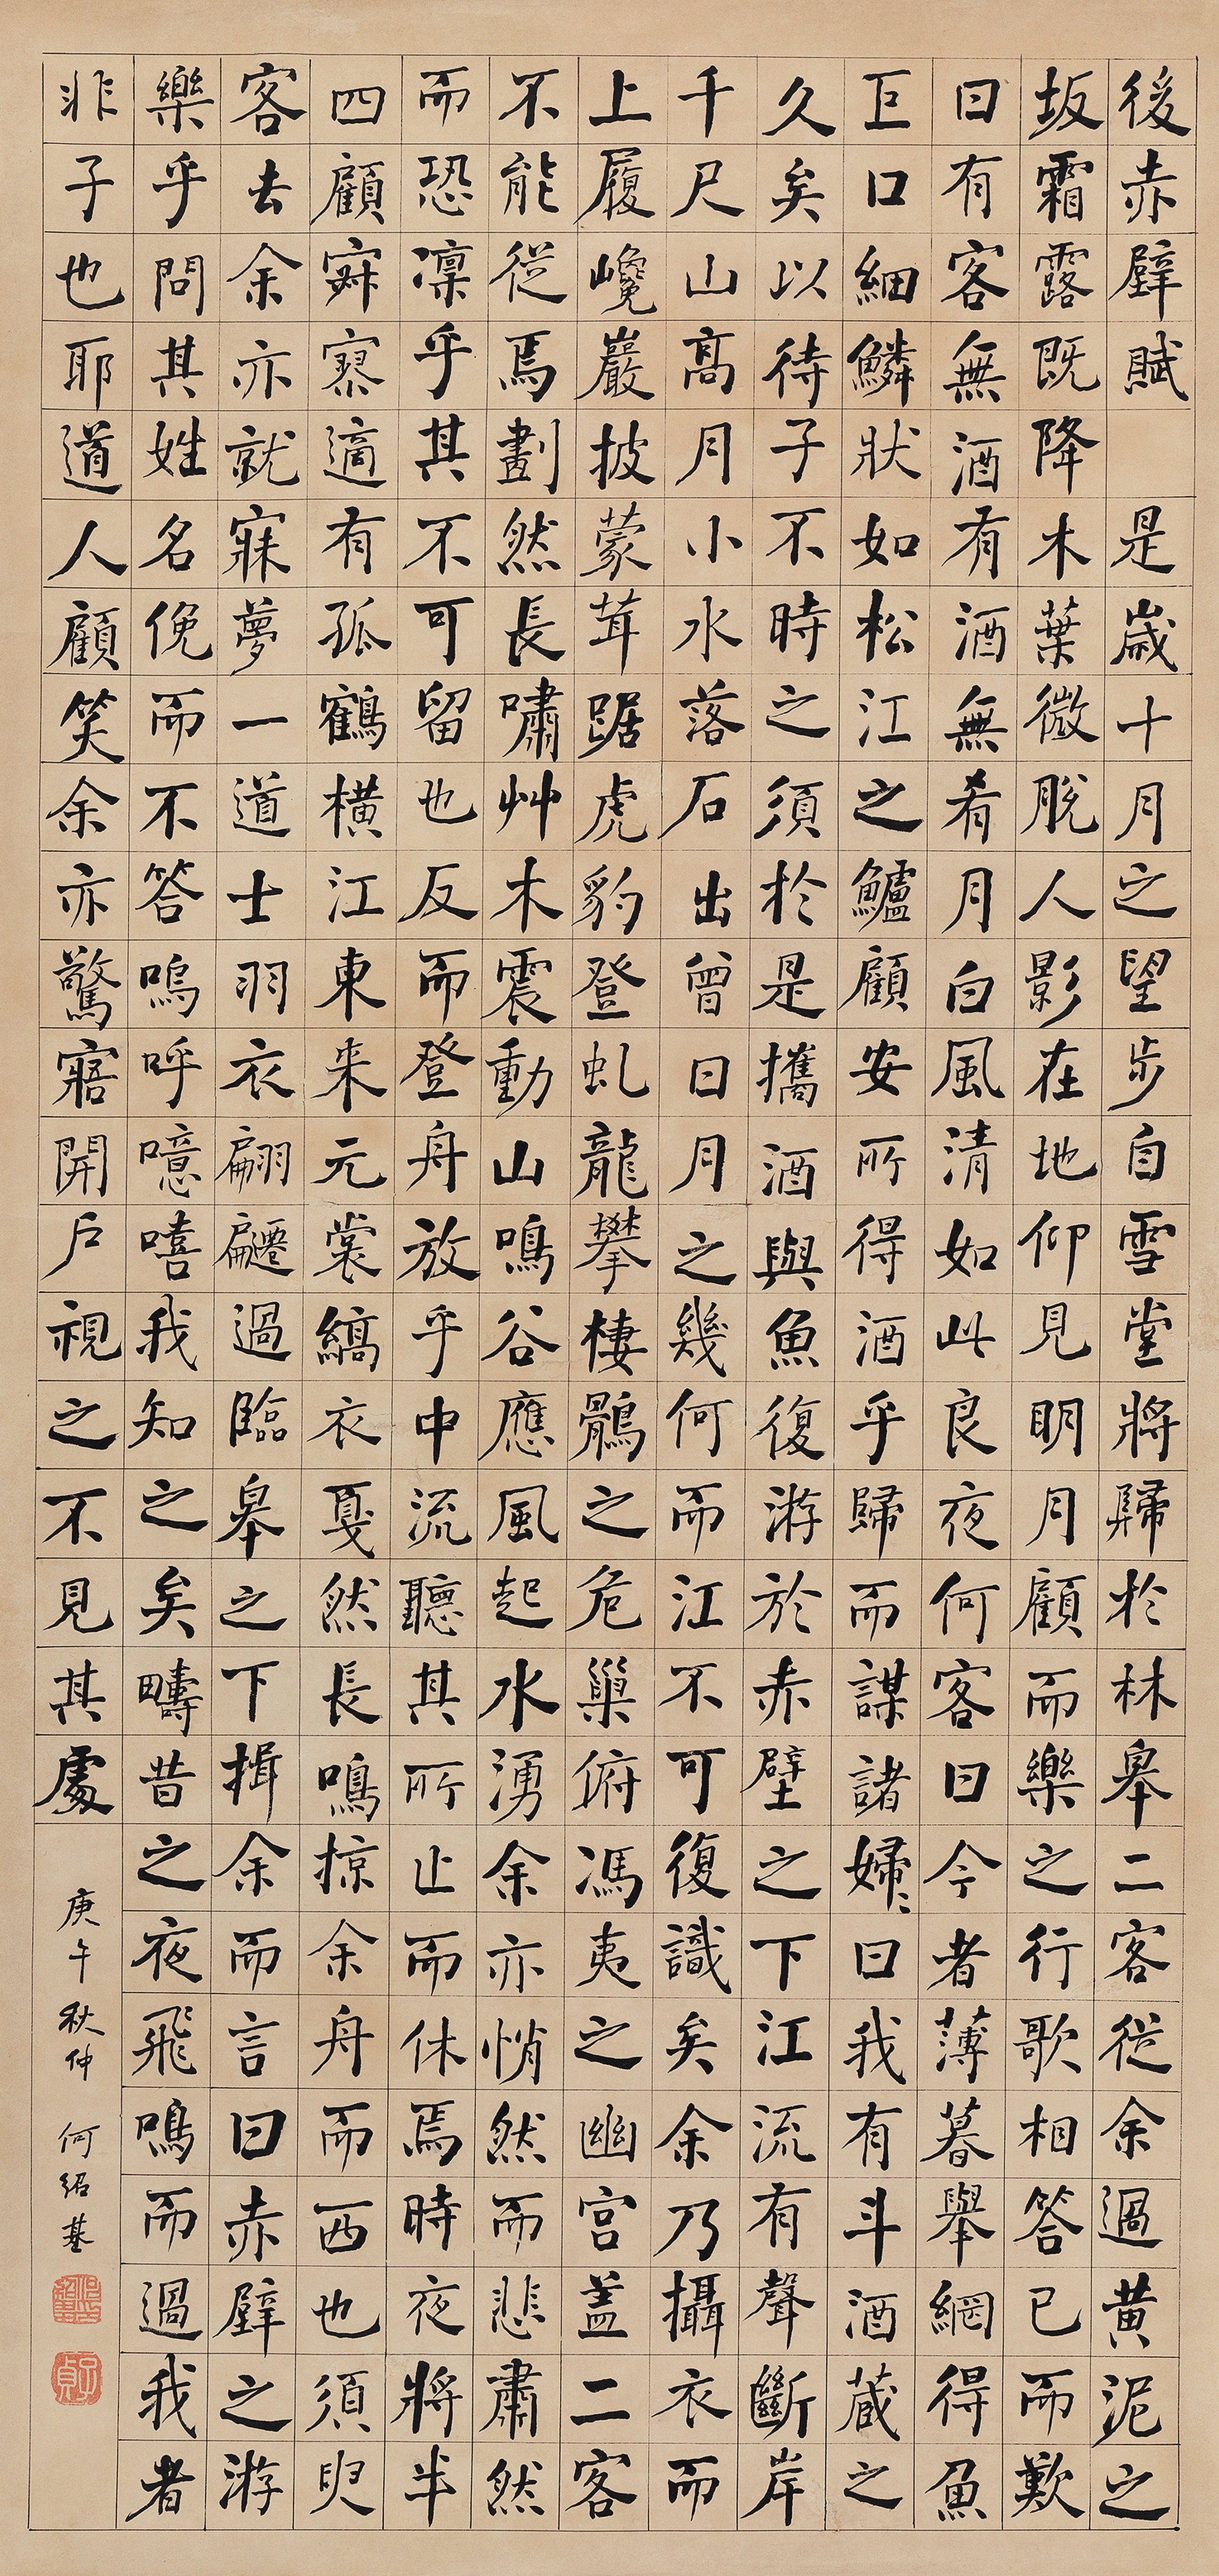 後赤壁賦　是歲十月之望步自雪堂將歸於林皋二客從余過黃泥之
坂霜露既降木葉微脫人影在地仰見明月顧而樂之行歌相答已而歎
曰有客無酒有酒無肴月白風清如此良夜何客曰今者薄暮舉網得魚
巨口細鱗狀如松江之鱸顧安所得酒乎歸而謀諸婦婦曰我有斗酒藏之
久矣以待子不時之須於是攜酒與魚復游於赤壁之下江流有聲斷岸
千尺山高月小水落石出曾日月之幾何而江不可復識矣余乃攝衣而
上履巉巖披蒙茸踞虎豹登虬龍攀棲鶻之危巢俯馮夷之幽宮蓋二客
不能從焉劃然長嘯艸木震動山鳴谷應風起水湧余亦悄然而悲肅然
而恐凜乎其不可留也反而登舟放乎中流聽其所止而休焉時夜將半
四顧寂寥適有孤鶴橫江東來元裳縞衣戛然長鳴掠余舟而西也須臾
客去余亦就寐夢一道士羽衣翩躚過臨皋之下揖余而言曰赤壁之游
樂乎問其姓名俛而不答嗚呼噫嘻我知之矣疇昔之夜飛鳴而過我者
非子也耶道人顧笑余亦驚寤開戶視之不見其處
庚午秋仲　何紹基
子貞